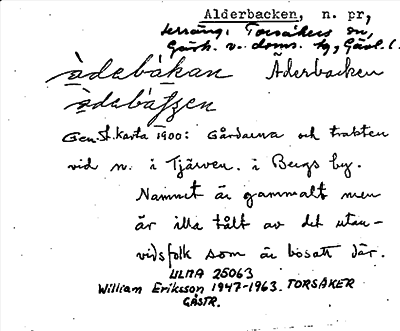 Alderbacken, n. pr,
terräng: Torsåkers sn,
Gästr. v. doms. tg, Gävl. l.
àdebákan Åderbacken
àdebáſſen
Gen. St. Karta 1900: Gårdarna och trakten
vid n. i Tjärven. i Bergs by.
Namnet är gammalt men
är illa tålt av det utan-
vidsfolk som är bosatt där.
ULMA 25063
William Eriksson 1947-1963. TORSÅKER
GÄSTR.